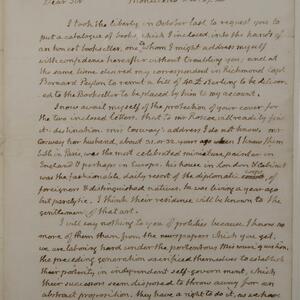 Dear Sir Monticello
I took the liberty in October last to request you to
put a catalogue of books, which I inclosed into the hands of
an honest bookseller, one whom I might address myself
with confidence hereafter without troubling you; and at
the same time desired my correspondent in Richmond Capt
Bernard Peyton to remit a bill of Sterling to be deliver-
ed to the Bookseller to be placed by him to my account.
I now avail myself of the protection of your cover for
the two inclosed letters. that to mr Roscoe will readily find
it's destination. mrs Cosway's address I do not know. mr
Cosway her husband, about 31. or 32. years ago when I knew them
both in Paris, was the most celebrated miniature painter in
England & perhaps in Europe. his house in London
was the fashionable, daily resort of the diplomatic corps
of foreigners & distinguished natives. he was living a year ago
but paralytic. I think their residence will be known to the
gentlemen of that art.
I will say nothing to you of politics because I know no
more of them than the newspapers which you get.
we are laboring hard under the portentous Missouri question.
the preceding generation sacrificed themselves to establish
their posterity in independant self-government, which
their successors seem disposed to throw away for an
abstract proposition. they have a right to do it, as we have